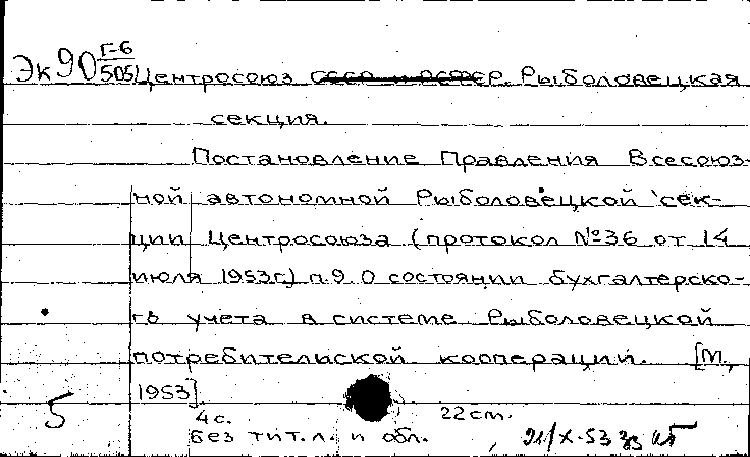 Эк90 Г-6/505 Центросоюз Рыболовецкая
секция.
Постановление Правления Всесоюз-
ной автономной Рыболовецкой сек-
ции Центросоюза (протокол №36 от 14
июля 1953г.) п.9. О состоянии бухгалтерско-
го учета в системе Рыболовецкой
потребительской кооперации. [М.,
1953].
4с. 22см.
без тит.л. и обл.
5
21/X-53